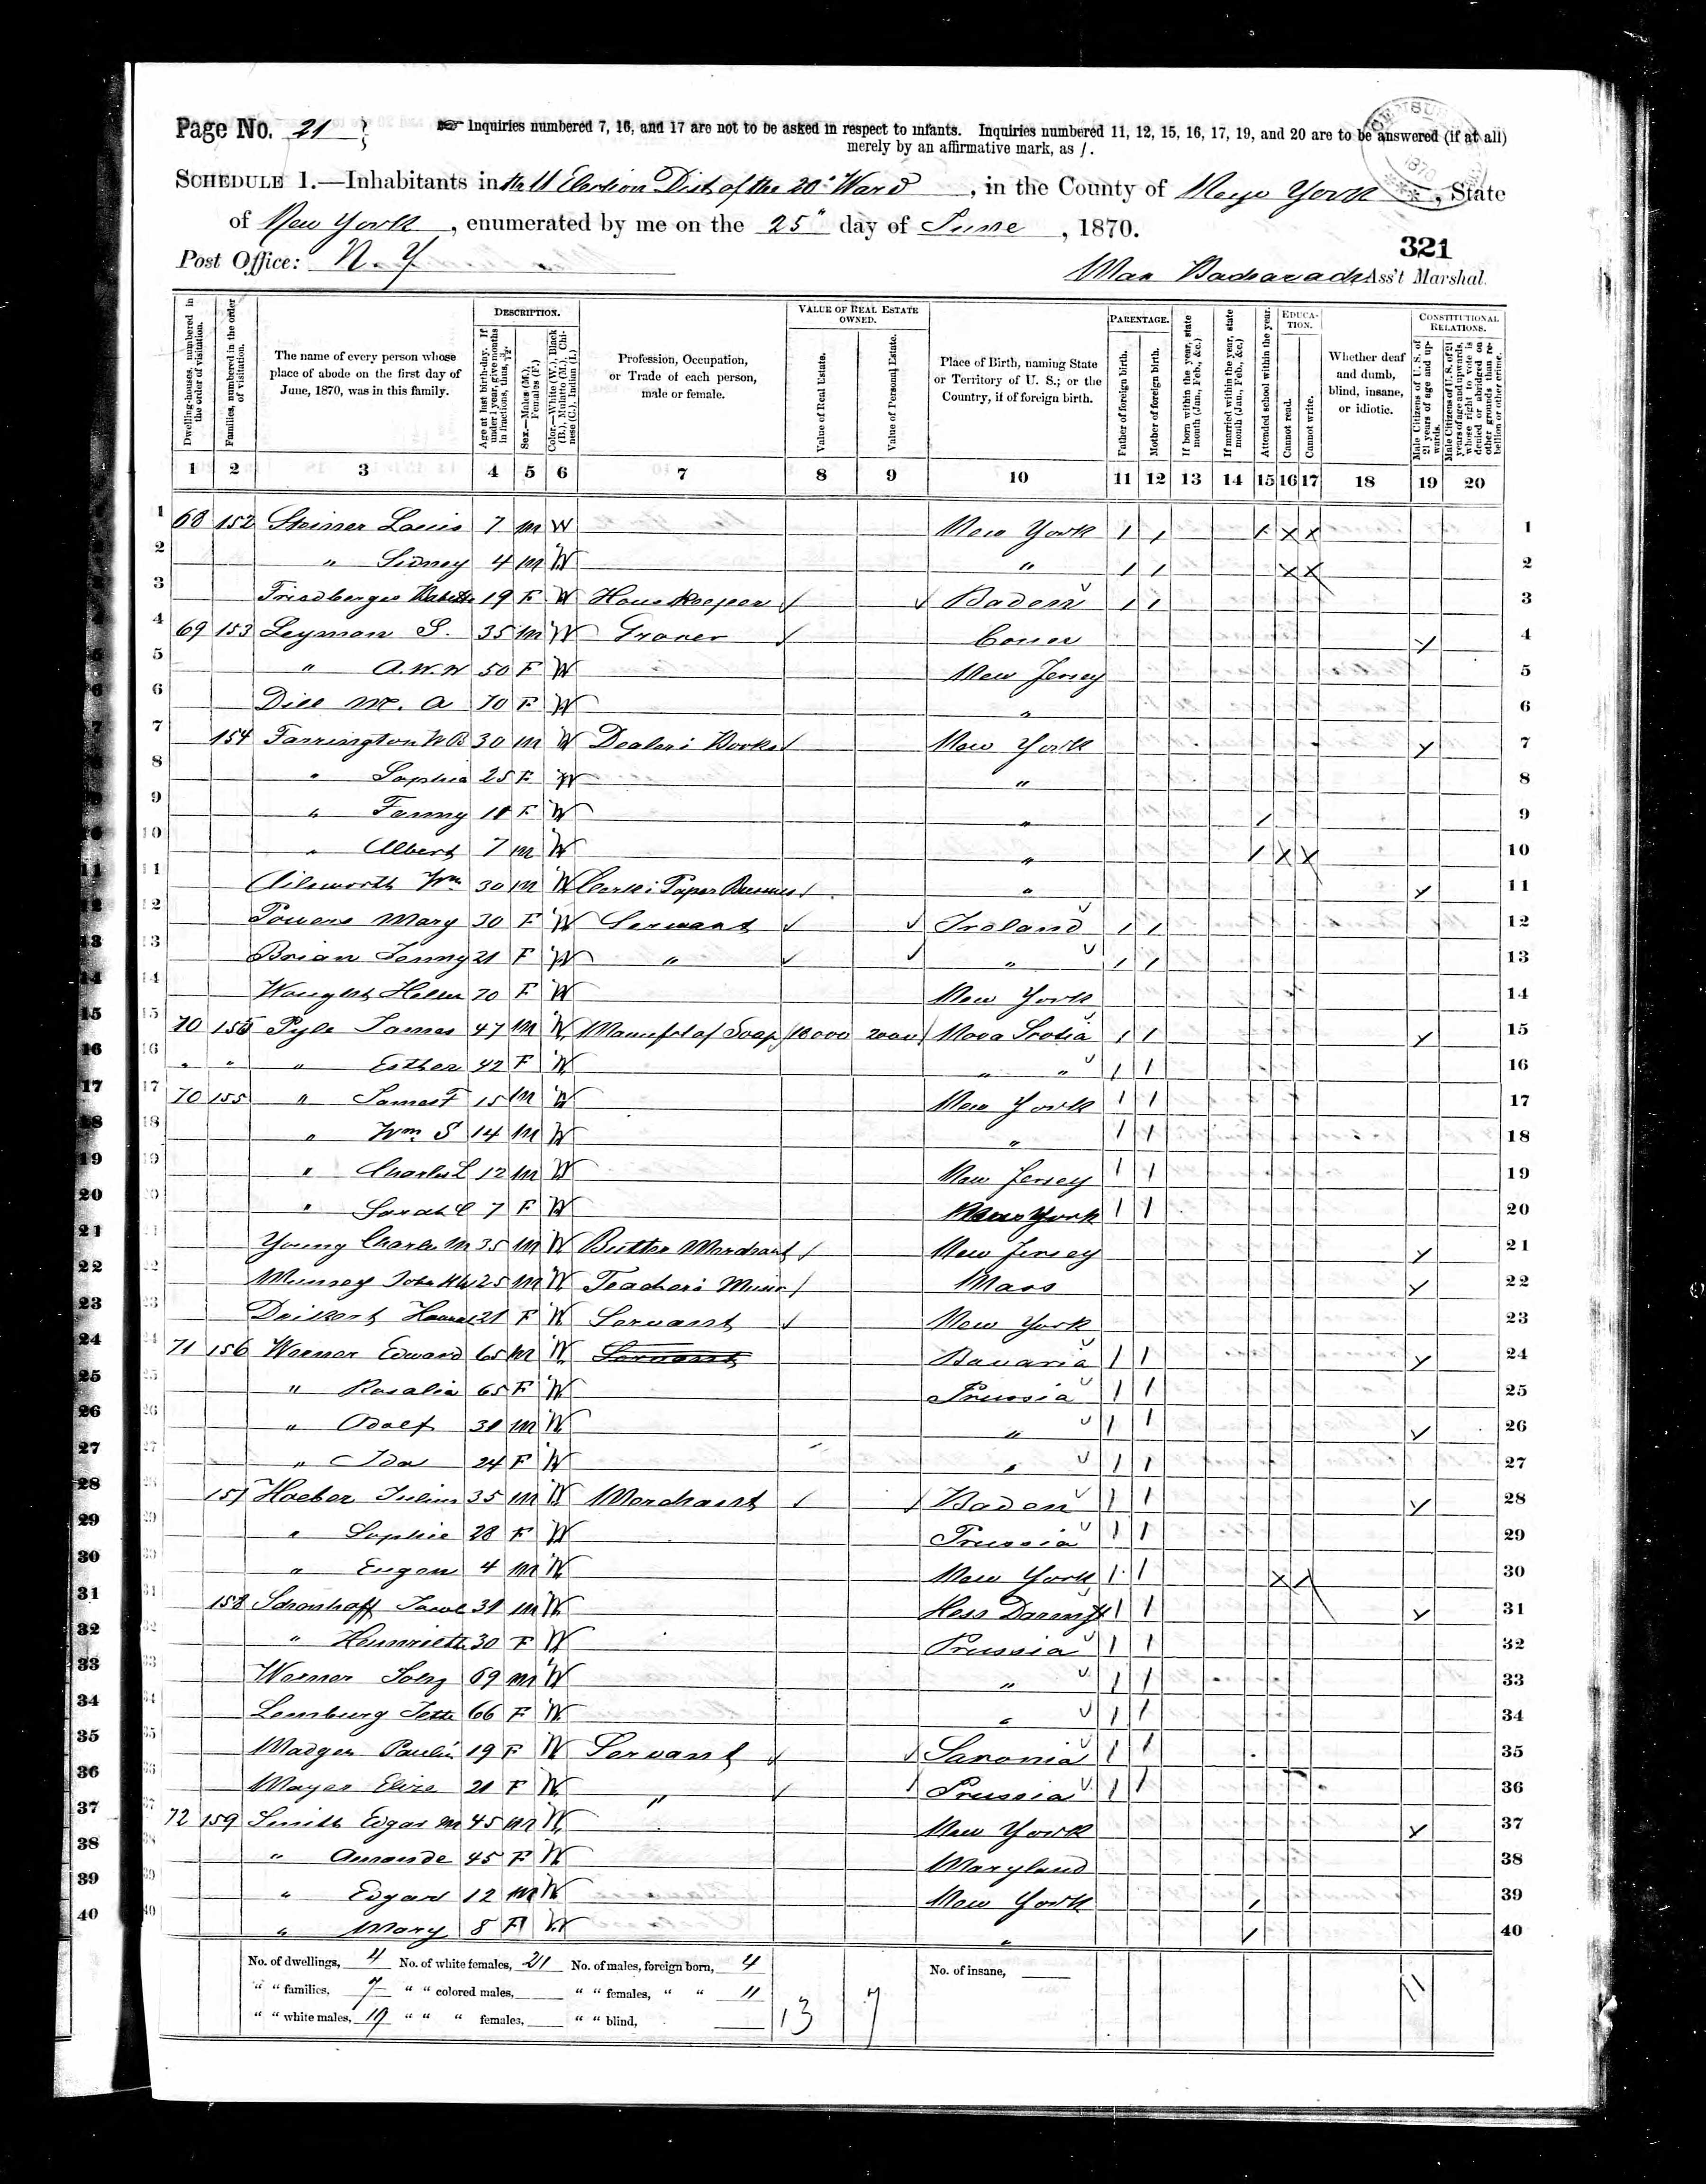 Page No. 21
Inquiries numbered 7, 16, and 17 are not to be asked in respect to infants. Inquiries numbered 11, 12, 15, 16, 17, 19, and 20 are to be answered (if at all)
merely by an affirmative mark, as /.
SCHEDULE 1.—Inhabitants in the Election Dist of the 20" Ward, in the County of New York, State
of New York, enumerated by me on the 25" day of June, 1870.
321
Post Office: N. Y
Ass't Marshal.
DESCRIPTION.
VALUE OF REAL ESTATE OWNED.
PARENTAGE.
EDUCATION.
CONSTITUTIONAL RELATIONS.
Dwelling-houses, numbered in the order of visitation.
Families, numbered in the order of visitation.
The name of every person whose place of abode on the first day of June, 1870, was in this family.
Age at last birth-day. If under 1 year, give months in fractions, thus, 3/12.
Sex.—Males (M.), Females (F.)
Color.—White (W.), Black (B.), Mulatto (M.), Chinese (C.), Indian (I.)
Profession, Occupation, or Trade of each person, male or female.
Value of Real Estate.
Value of Personal Estate.
Place of Birth, naming State or Territory of U. S.; or the Country, if of foreign birth.
Father of foreign birth.
Mother of foreign birth.
If born within the year, state month (Jan., Feb., &c.)
If married within the year, state month (Jan., Feb., &c.)
Attended school within the year.
Cannot read.
Cannot write.
Whether deaf and dumb, blind, insane, or idiotic.
Male Citizens of U. S. of 21 years of age and upwards.
Male Citizens of U. S. of 21 years of age and upwards, whose right to vote is denied or abridged on other grounds than rebellion or other crime.
1 2 3 4 5 6 7 8 9 10 11 12 13 14 15 16 17 18 19 20
1 68 152 Louis 7 M W New York / / / X X 1
2 " Sidney 4 M W " / / X X 2
3 19 F W Housekeeper Baden / / 3
4 69 153 Leyman S. 35 M W Conn 4
5 " A. W. W 50 F W New Jersey 5
6 Dill A 70 F W " 6
7 154 Farrington W B 30 M W Dealer i Books New York 7
8 " Sophia 25 F W " 8
9 " Fanny F W " / 9
10 " Albert 7 M W " / X X 10
11 Ailsworth Wm 30 M W Clerk i Paper Business " 11
12 Powers Mary 30 F W Servant Ireland / / 12
13 Brian Jenny 21 F W " " / / 13
14 Helen 70 F W New York 14
15 70 155 Pyle James 47 M W Manufct of Soap Nova Scotia / / 15
16 " " " Esther 42 F W " " / / 16
17 70 155 " James T 15 M W New York / / 17
18 " Wm S 14 M W " / / 18
19 " Charles L 12 M W New Jersey / / 19
20 " Sarah C 7 F W New York / / 20
21 Young Charles M 35 M W Butter Merchant New Jersey 21
22 Munsey John 25 M W Teacher i Music Mass 22
23 21 F W Servant New York 23
24 71 156 Werner Edward 65 M W Servant Bavaria / / 24
25 " Rosalia 65 F W Prussia / / 25
26 " Adolf 31 M W " / / 26
27 " Ida 24 F W " / / 27
28 157 Hoeber Julius 35 M W Merchant Baden / / 28
29 " Sophie 28 F W Prussia / / 29
30 " Eugen 4 M W New York / / X 30
31 158 Schonhoff 31 M W Hess Darmst / / 31
32 " Henriette 30 F W Prussia / / 32
33 Werner 69 M W " / / 33
34 Lemburg Jette 66 F W " / / 34
35 Madger Paulin 19 F W Servant Saxonia / / 35
36 Mayer Elize 21 F W " Prussia / / 36
37 72 159 Smith Edgar M 45 M W New York 37
38 " Amande 45 F W Maryland 38
39 " Edgar 12 M W New York / 39
40 " Mary 8 F W " / 40
No. of dwellings, 4 No. of white females, 21 No. of males, foreign born, 4 No. of insane,
" " families, 7 " " colored males, " " females, " " 11
" " white males, 19 " " " females, " " blind, 13 7 11